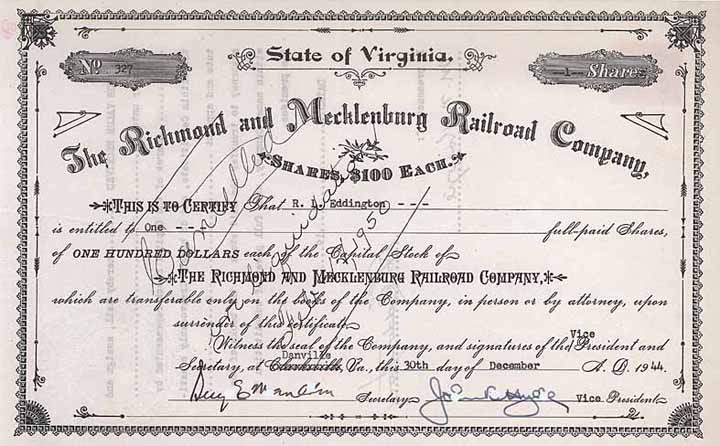 State of Virginia.
No 327
1 Shares
The Richmond and Mecklenburg Railroad Company,
SHARES, $100 EACH.
THIS IS TO CERTIFY That R. L. Eddington - - -
is entitled to One - - full-paid Shares,
of ONE HUNDRED DOLLARS each of the Capital Stock of
THE RICHMOND AND MECKLENBURG RAILROAD COMPANY,
which are transferable only on the books of the Company, in person or by attorney, upon
surrender of this certificate.
Witness the seal of the Company, and signatures of the Vice President and
Secretary, at Danville Clarksville, Va., this 30th day of December A. D. 1944.
Secretary Vice President
Cancelled
1950